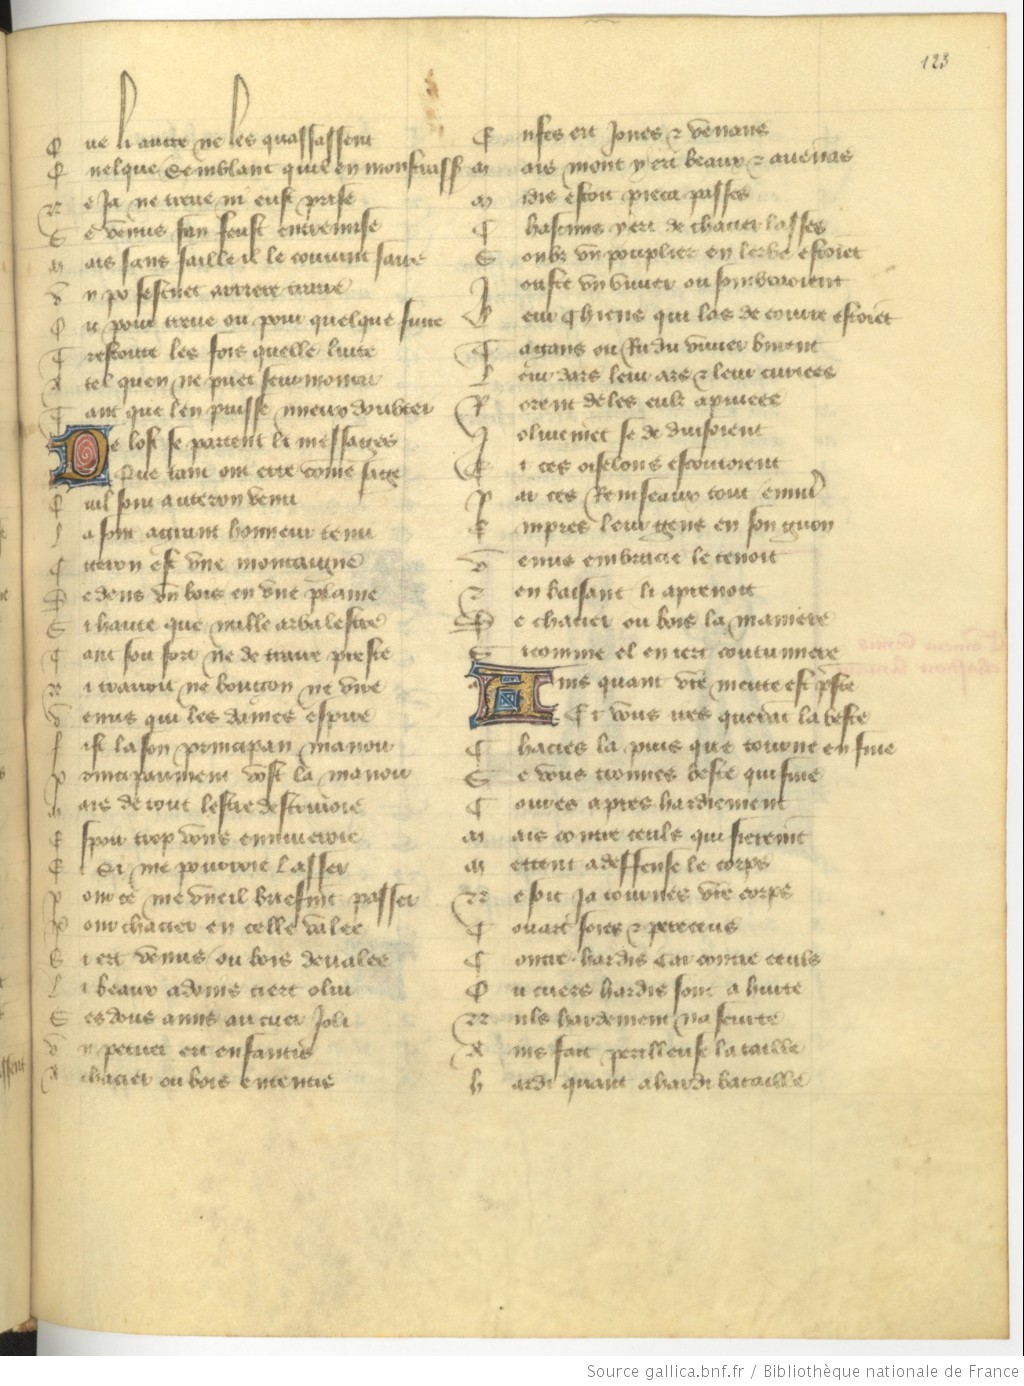 123
Que li autre ne les quassassent
Quelque semblant quil en monstrass
Ne ja ne treue ni eust prise
Se venus san feust entremise
Mais sans faille il le couuint faire
Un po sestuet arriere traire
Ou pour treue ou pour quelque fuite
Trestoute les fois quelle luite
A tel quen ne puet seurmonter
Tant que len puisse mieux doubter
De lost se partent li messages
Que tant ont erre come sage
Quil sont a citeron venu
La sont a grant honneur tenu
Citeron est vne montaigne
Dedens vn bois en vne plaine
Si haute que nulle arbalestre
Tant soit fort ne de traire preste
Ni trairoit ne boucon ne vire
Venus qui les dames espire
fist la son principau manoir
Principaument vost la manoir
Mais de tout lestre descriuoie
Espoir trop vous ennuieroie
Et si me pourroie lasser
Pour ce me vueil briefmt passer
Pour chacier en celle valee
Siert venus ou bois deualee
Li beaux adonis iert o lui
Ses dous amis au cuer joli
Un petitet ert enfantis
A chacier ou bois ententis
Enfes ert jones et venans
Mais mont y ert beaux et auenās
Midis estoit pieca passes
Chascuns yert de chacier lasses
Soubz vn pouplier en lerbe estoiēt
Jouste vn viuier ou sombroioient
Leur chiens qui las de courre estoiēt
Tagans ou Ru du viuier buuoient
Leur dars leur ars et leur cuiries
Rorent deles eulx apuiees
Joliuemēt se deduisoient
Et ces oiselons escoutoient
Par ces Rainseaux tout enuirō
Empres leur geus en son giron
Venus embracie le tenoit
Et en baisant li aprenoit
De chacier ou bois la maniere
Si comme el en iert coutumiere
Amis quant vr̄e meute est p̄ste
Et vous ires querāt la beste
Chacies la puis que tourne en fuie
Se vous trouues beste qui fuie
Coures apres hardiement
Mais contre ceuls qui fieremēt
Mettent a deffense le corps
Ne soit ja tournes vr̄e corps
Couart soies et pereceus
Contre hardis car contre ceuls
Ou cuers hardis sont a hurte
Nuls hardement na seurte
Ains fait perilleuse bataille
Hardi quant a hardi bataille
Source gallica.bnf.fr / Bibliothèque nationale de France